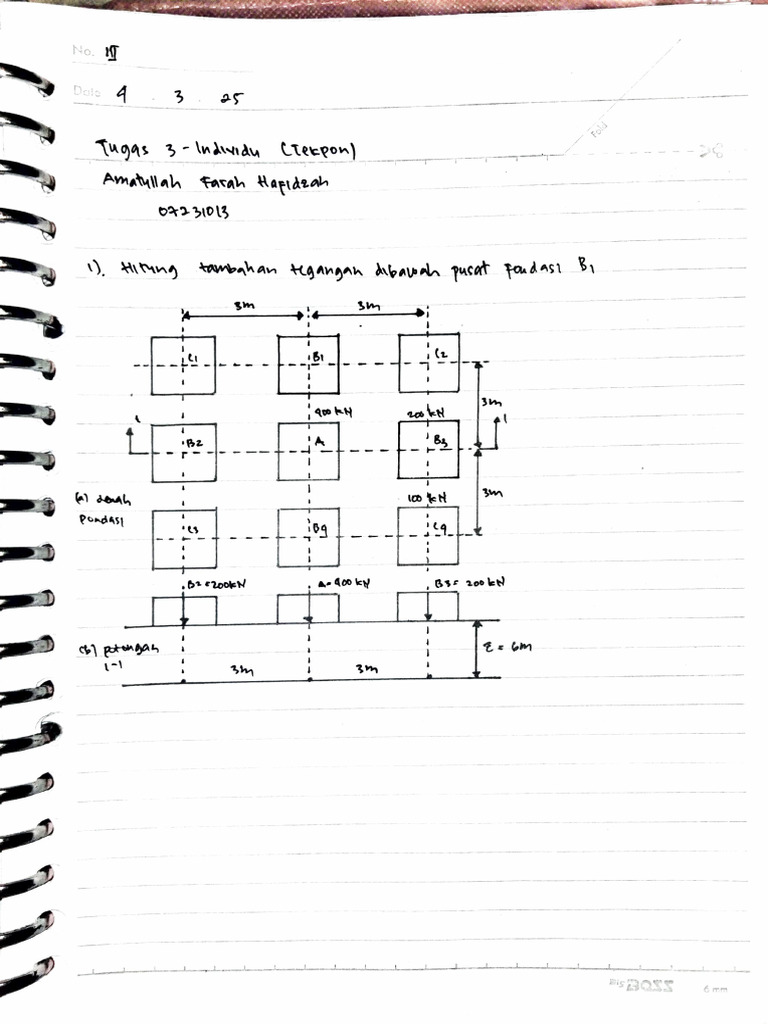 No. III
Date 4 . 3 . 25
Fold
Tugas 3 - Individu (Tekpon)
Amatullah Farah Hafidzah
07231013
1). Hitung tambahan tegangan dibawah pusat fondasi B1
3m 3m
C1 B1 C2
3m
400 kN 200 kN
1 1
B2 A B3
3m
(a) denah
pondasi
100 kN
C3 B4 C4
B2 = 200 kN A = 400 kN B3 = 200 kN
(b) potongan
1-1
z = 6m
3m 3m
BIG BOZZ 6 mm